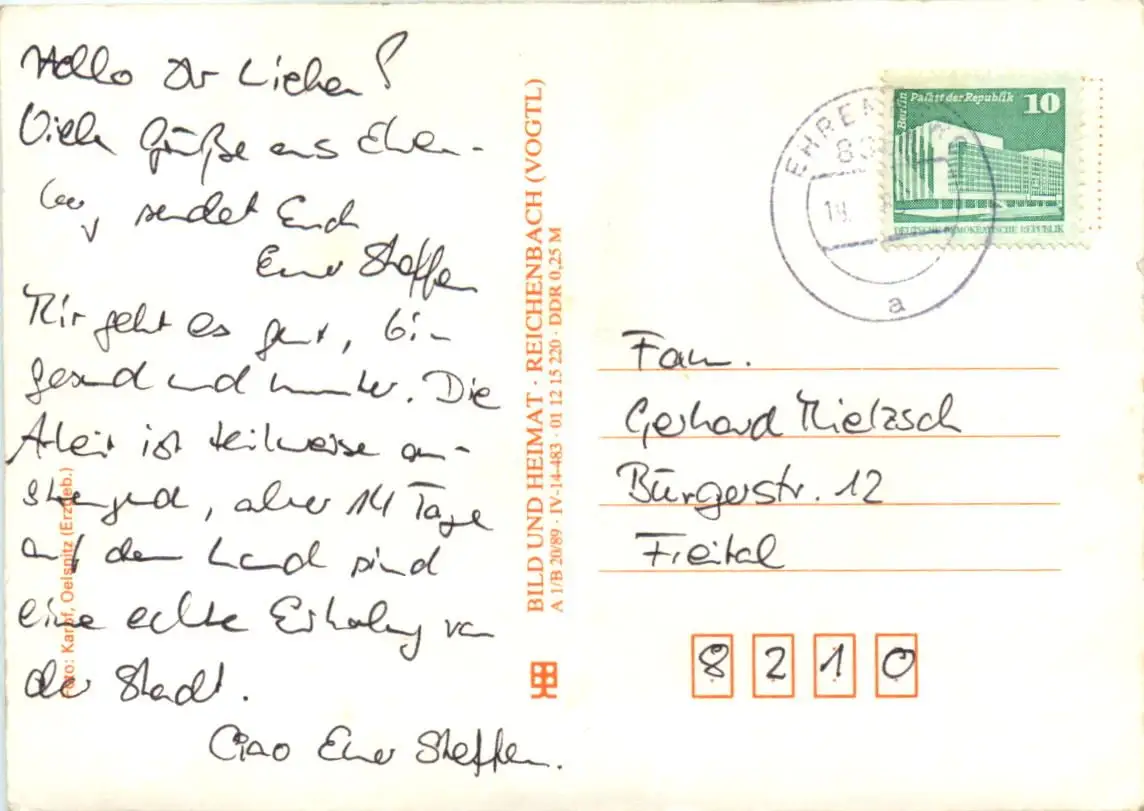 Hallo Ihr Lieben!
Viele Grüße aus Ehren-
berg, sendet Euch
Euer Steffen
Mir geht es gut, bin
gesund und munter. Die
Arbeit ist teilweise an-
strengend, aber 14 Tage
auf dem Land sind
eine echte Erholung von
der Stadt.
Ciao Euer Steffen.
Foto: Karpf, Oelsnitz (Erzgeb.)
BILD UND HEIMAT · REICHENBACH (VOGTL)
A 1/B 20/89 · IV-14-483 · 01 12 15 220 · DDR 0,25 M
Berlin
Palast der Republik
10
DEUTSCHE DEMOKRATISCHE REPUBLIK
a
Fam.
Gerhard Mietzsch
Bürgerstr. 12
Freital
8210